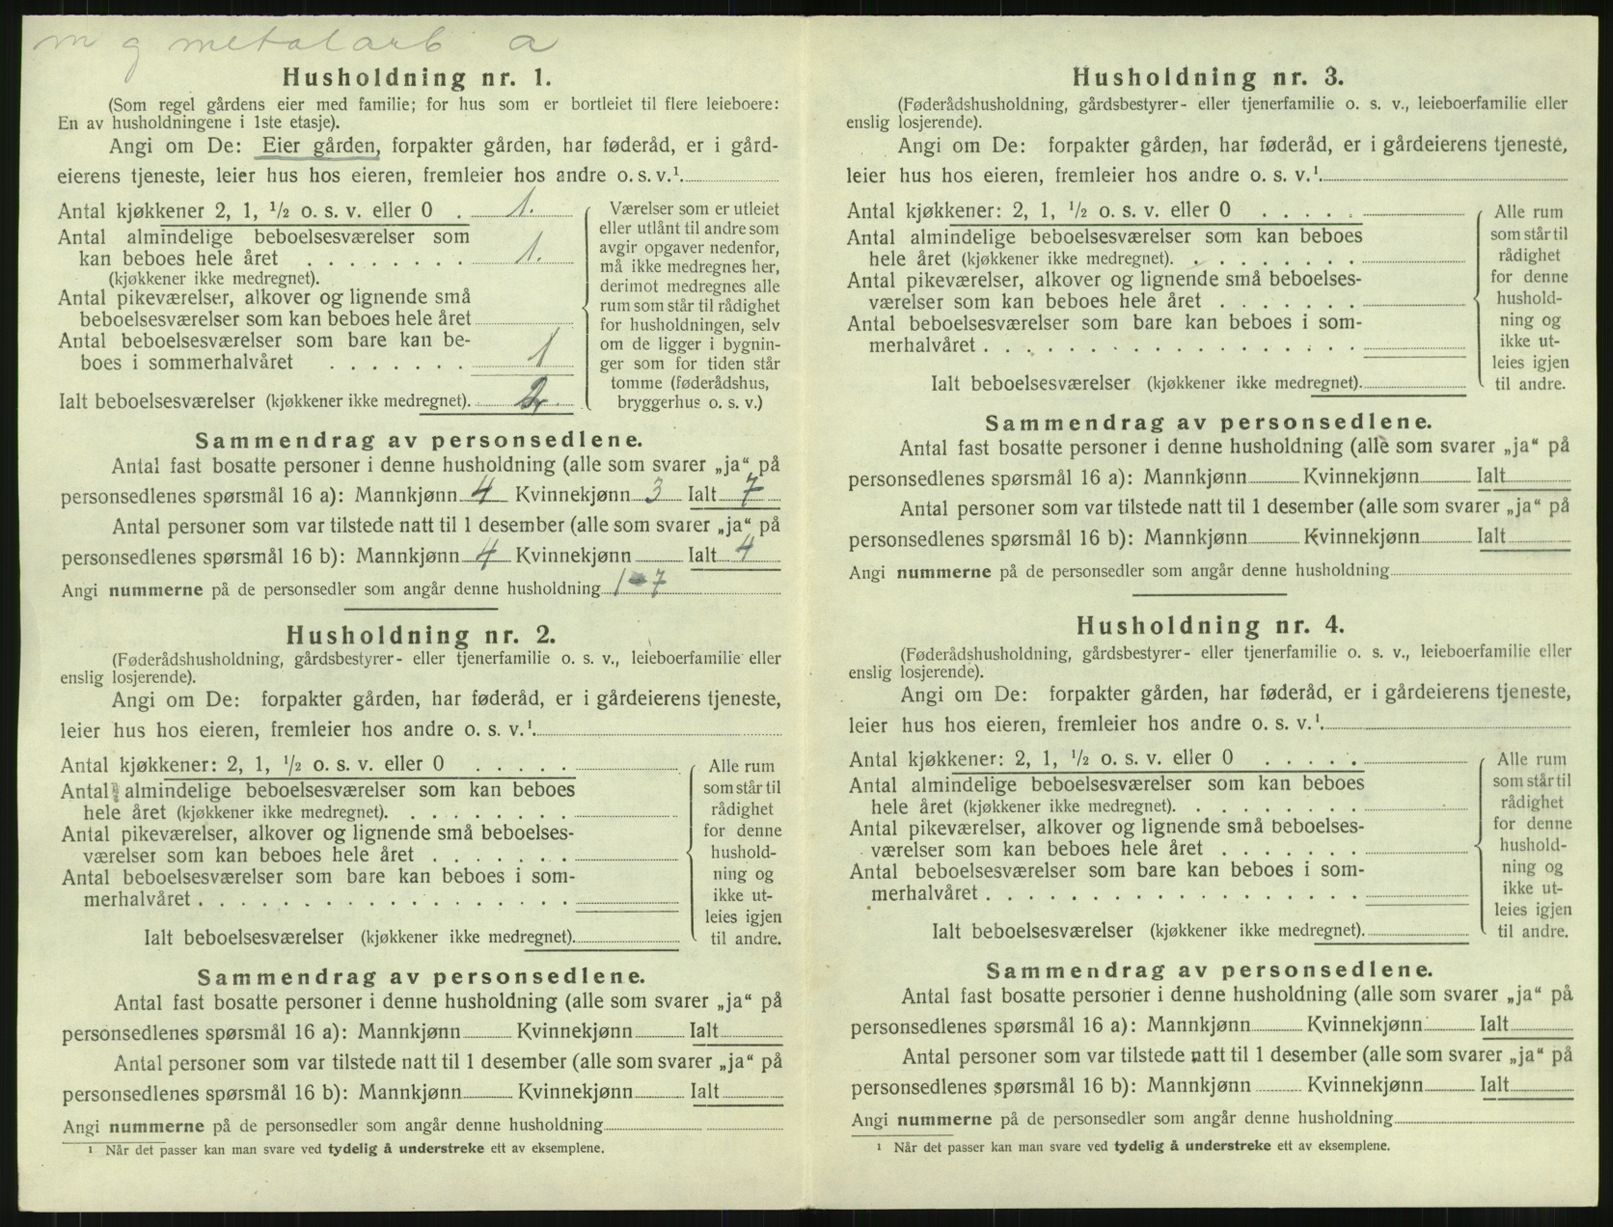 m g metalarb a
Husholdning nr. 1.
(Som regel gårdens eier med familie; for hus som er bortleiet til flere leieboere:
En av husholdningene i 1ste etasje).
Angi om De: Eier gården, forpakter gården, har føderåd, er i gård-
eierens tjeneste, leier hus hos eieren, fremleier hos andre o. s. v.¹
Antal kjøkkener 2, 1, ½ o. s. v. eller 0 . 1.
Antal almindelige beboelsesværelser som
kan beboes hele året . . . . . . . . 1.
(kjøkkener ikke medregnet).
Antal pikeværelser, alkover og lignende små
beboelsesværelser som kan beboes hele året
Antal beboelsesværelser som bare kan be-
boes i sommerhalvåret . . . . . . . 1
Ialt beboelsesværelser (kjøkkener ikke medregnet). 2
Værelser som er utleiet
eller utlånt til andre som
avgir opgaver nedenfor,
må ikke medregnes her,
derimot medregnes alle
rum som står til rådighet
for husholdningen, selv
om de ligger i bygnin-
ger som for tiden står
tomme (føderådshus,
bryggerhus o. s. v.)
Sammendrag av personsedlene.
Antal fast bosatte personer i denne husholdning (alle som svarer „ja“ på
personsedlenes spørsmål 16 a): Mannkjønn 4 Kvinnekjønn 3 Ialt 7
Antal personer som var tilstede natt til 1 desember (alle som svarer „ja“ på
personsedlenes spørsmål 16 b): Mannkjønn 4 Kvinnekjønn Ialt 4
Angi nummerne på de personsedler som angår denne husholdning 1-7
Husholdning nr. 2.
(Føderådshusholdning, gårdsbestyrer- eller tjenerfamilie o. s. v., leieboerfamilie eller
enslig losjerende).
Angi om De: forpakter gården, har føderåd, er i gårdeierens tjeneste,
leier hus hos eieren, fremleier hos andre o. s. v.¹
Antal kjøkkener: 2, 1, ½ o. s. v. eller 0 . . . . .
Antal almindelige beboelsesværelser som kan beboes
hele året (kjøkkener ikke medregnet). . . . . . . .
Antal pikeværelser, alkover og lignende små beboelses-
værelser som kan beboes hele året . . . . . . .
Antal beboelsesværelser som bare kan beboes i som-
merhalvåret . . . . . . . . . . . . . . . . . .
Ialt beboelsesværelser (kjøkkener ikke medregnet).
Alle rum
som står til
rådighet
for denne
hushold-
ning og
ikke ut-
leies igjen
til andre.
Sammendrag av personsedlene.
Antal fast bosatte personer i denne husholdning (alle som svarer „ja“ på
personsedlenes spørsmål 16 a): Mannkjønn Kvinnekjønn Ialt
Antal personer som var tilstede natt til 1 desember (alle som svarer „ja“ på
personsedlenes spørsmål 16 b): Mannkjønn Kvinnekjønn Ialt
Angi nummerne på de personsedler som angår denne husholdning
¹ Når det passer kan man svare ved tydelig å understreke ett av eksemplene.
Husholdning nr. 3.
(Føderådshusholdning, gårdsbestyrer- eller tjenerfamilie o. s. v., leieboerfamilie eller
enslig losjerende).
Angi om De: forpakter gården, har føderåd, er i gårdeierens tjeneste,
leier hus hos eieren, fremleier hos andre o. s. v.¹
Antal kjøkkener: 2, 1, ½ o. s. v. eller 0 . . . . .
Antal almindelige beboelsesværelser som kan beboes
hele året (kjøkkener ikke medregnet). . . . . . . .
Antal pikeværelser, alkover og lignende små beboelses-
værelser som kan beboes hele året . . . . . . .
Antal beboelsesværelser som bare kan beboes i som-
merhalvåret . . . . . . . . . . . . . . . . . .
Ialt beboelsesværelser (kjøkkener ikke medregnet).
Alle rum
som står til
rådighet
for denne
hushold-
ning og
ikke ut-
leies igjen
til andre.
Sammendrag av personsedlene.
Antal fast bosatte personer i denne husholdning (alle som svarer „ja“ på
personsedlenes spørsmål 16 a): Mannkjønn Kvinnekjønn Ialt
Antal personer som var tilstede natt til 1 desember (alle som svarer „ja“ på
personsedlenes spørsmål 16 b): Mannkjønn Kvinnekjønn Ialt
Angi nummerne på de personsedler som angår denne husholdning
Husholdning nr. 4.
(Føderådshusholdning, gårdsbestyrer- eller tjenerfamilie o. s. v., leieboerfamilie eller
enslig losjerende).
Angi om De: forpakter gården, har føderåd, er i gårdeierens tjeneste,
leier hus hos eieren, fremleier hos andre o. s. v.¹
Antal kjøkkener: 2, 1, ½ o. s. v. eller 0 . . . . .
Antal almindelige beboelsesværelser som kan beboes
hele året (kjøkkener ikke medregnet). . . . . . . .
Antal pikeværelser, alkover og lignende små beboelses-
værelser som kan beboes hele året . . . . . . .
Antal beboelsesværelser som bare kan beboes i som-
merhalvåret . . . . . . . . . . . . . . . . . .
Ialt beboelsesværelser (kjøkkener ikke medregnet).
Alle rum
som står til
rådighet
for denne
hushold-
ning og
ikke ut-
leies igjen
til andre.
Sammendrag av personsedlene.
Antal fast bosatte personer i denne husholdning (alle som svarer „ja“ på
personsedlenes spørsmål 16 a): Mannkjønn Kvinnekjønn Ialt
Antal personer som var tilstede natt til 1 desember (alle som svarer „ja“ på
personsedlenes spørsmål 16 b): Mannkjønn Kvinnekjønn Ialt
Angi nummerne på de personsedler som angår denne husholdning
¹ Når det passer kan man svare ved tydelig å understreke ett av eksemplene.